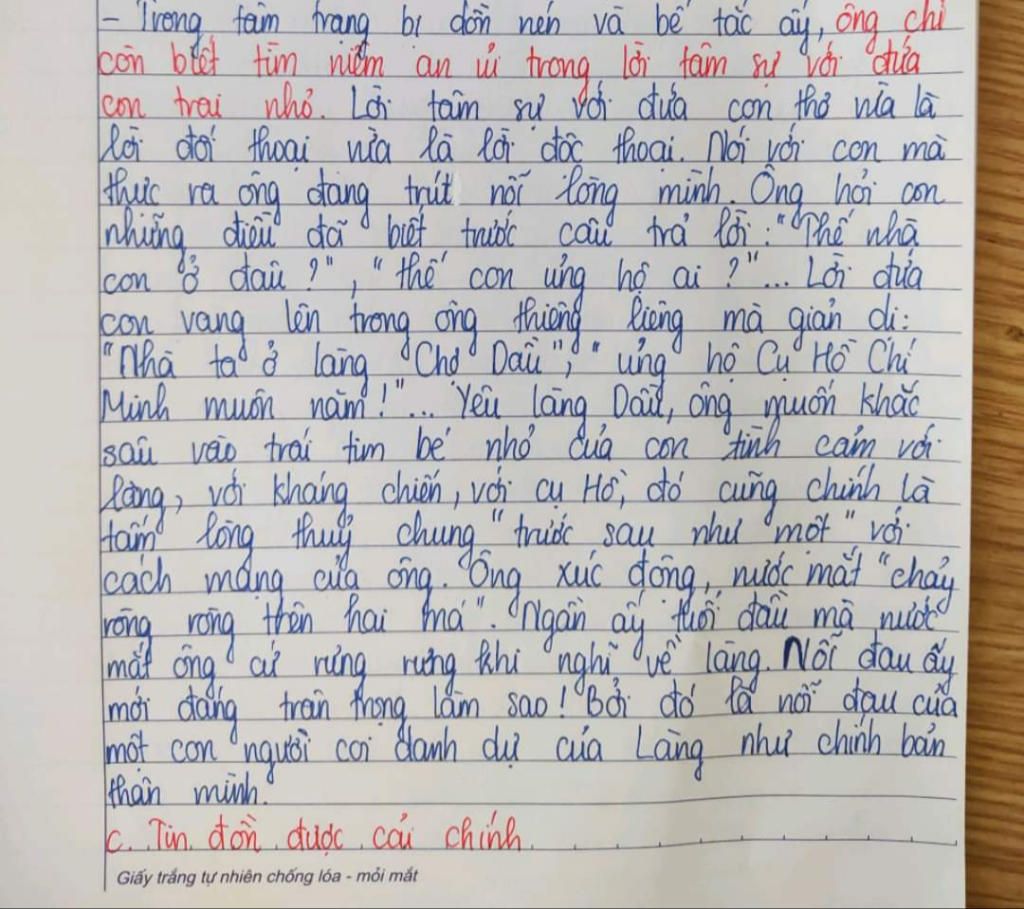 - Trong tâm trạng bị dồn nén và bế tắc ấy, ông chỉ
còn biết tìm niềm an ủi trong lời tâm sự với đứa
con trai nhỏ. Lời tâm sự với đứa con thơ vừa là
lời đối thoại vừa là lời độc thoại. Nói với con mà
thực ra ông đang trút nỗi lòng mình. Ông hỏi con
những điều đã biết trước câu trả lời: "Thế nhà
con ở đâu?", "thế con ủng hộ ai?"... Lời đứa
con vang lên trong ông thiêng liêng mà giản dị:
"Nhà ta ở làng Chợ Dầu"; "ủng hộ Cụ Hồ Chí
Minh muôn năm!"... Yêu làng Dầu, ông muốn khắc
sâu vào trái tim bé nhỏ của con tình cảm với
làng, với kháng chiến, với cụ Hồ, đó cũng chính là
tấm lòng thuỷ chung "trước sau như một" với
cách mạng của ông. Ông xúc động, nước mắt "chảy
ròng ròng trên hai má". Ngần ấy tuổi đầu mà nước
mắt ông cứ rưng rưng khi nghĩ về làng. Nỗi đau ấy
mới đáng trân trọng làm sao! Bởi đó là nỗi đau của
một con người coi danh dự của Làng như chính bản
thân mình.
c. Tin đồn được cải chính
Giấy trắng tự nhiên chống lóa - mỏi mắt